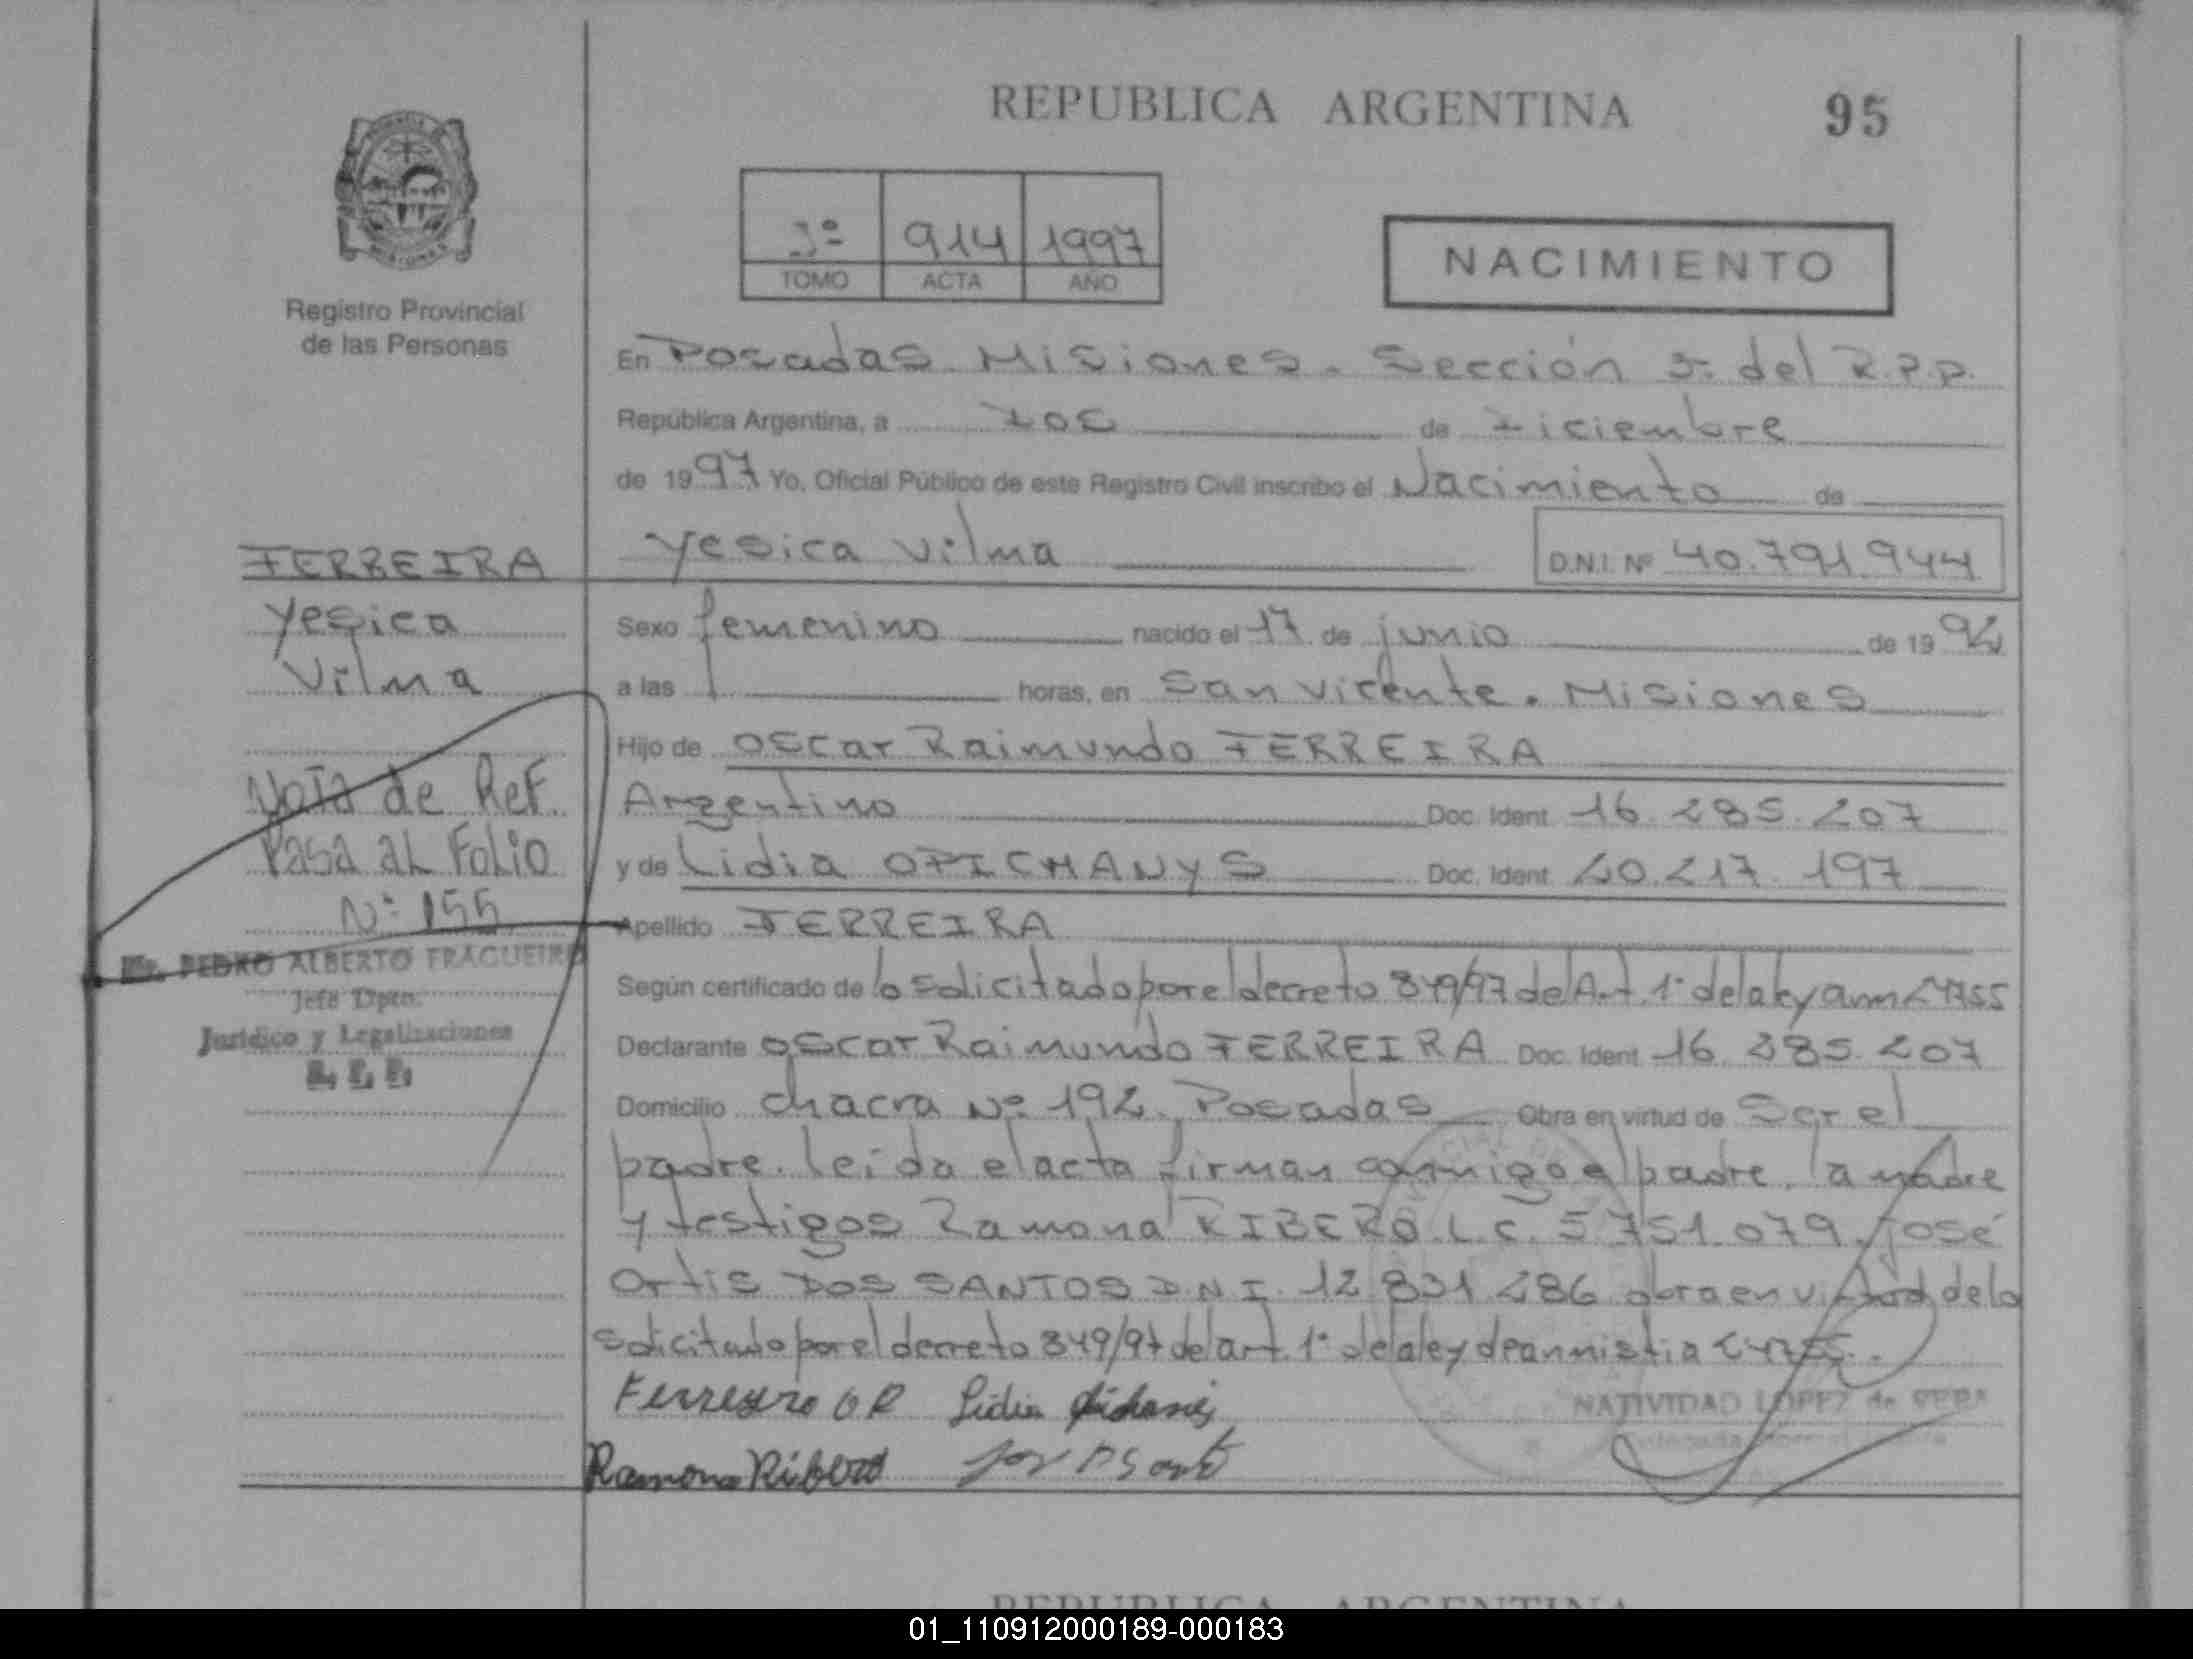 REPUBLICA ARGENTINA
95
914 1997
TOMO ACTA AÑO
NACIMIENTO
Registro Provincial
de las Personas
En Posadas. Misiones. Sección del R.P.P.
República Argentina, a Dos de Diciembre
de 1997 Yo, Oficial Público de este Registro Civil inscribo el Nacimiento de
Yesica Vilma
D.N.I. Nº 40.791.944
FERREIRA
Yesica
Vilma
Nota de Ref.
Pasa al Folio
Nº 155
PEDRO ALBERTO FRAGUEIRO
Jefe Dpto.
Jurídico y Legalizaciones
Sexo femenino nacido el 17 de junio de 1992
a las horas, en San Vicente. Misiones
Hijo de Oscar Raimundo FERREIRA
Argentino Doc. Ident. 16.285.207
y de Lidia OPICHANYS Doc. Ident. 20.217.197
Apellido FERREIRA
Según certificado de lo solicitado por el decreto 849/97 del Art. 1º de la ley 24755
Declarante Oscar Raimundo FERREIRA Doc. Ident. 16.285.207
Domicilio chacra Nº 192. Posadas Obra en virtud de Ser el
padre. leida el acta firman conmigo el padre, la madre
y testigos Ramona RIBERO L.C. 5.751.079. José
Ortis DOS SANTOS D.N.I. 12.831.286 obra en virtud de lo
solicitado por el decreto 849/97 del art. 1º de la ley de amnistia 24755.
Ferreyro O R Lidia
Ramona Ribero
NATIVIDAD LOPEZ de VERA
REPUBLICA ARGENTINA
01_110912000189-000183